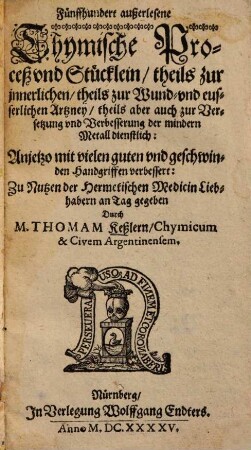 Fünffhundert außerlesene
Chymische Pro-
ceß vnd Stücklein / theils zur
jnnerlichen / theils zur Wund-vnd eus-
serlichen Artzney / theils aber auch zur Ver-
setzung vnd Verbesserung der mindern
Metall dienstlich:
Anjetzo mit vielen guten vnd geschwin-
den Handgriffen verbessert:
Zu Nutzen der Hermetischen Medicin Lieb-
habern an Tag gegeben
Durch
M. THOMAM Keßlern / Chymicum
& Civem Argentinensem.
PERSEVERA USQ AD FINEM ET CORONABERI
Nürnberg /
In Verlegung Wolffgang Endters.
Anno M. DC. XXXXV.